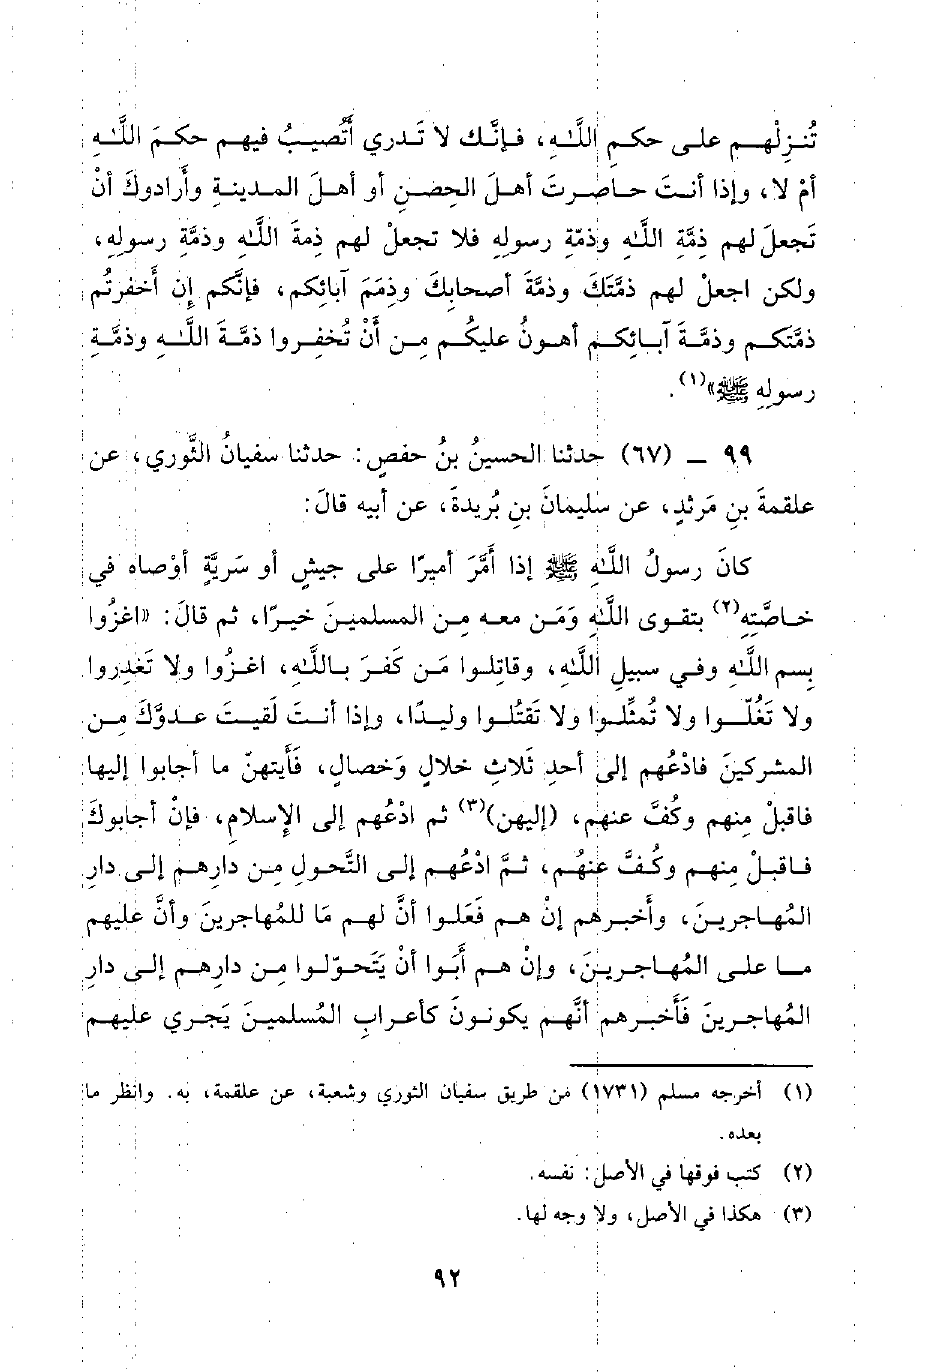 تُنزِلْهم على حكمِ اللَّهِ، فإنَّك لا تَدري أَتُصيبُ فيهم حكمَ اللَّهِ
أمْ لا، وإذا أنتَ حاصرتَ أهلَ الحِصنِ أو أهلَ المدينةِ وأرادوكَ أنْ
تَجعلَ لهم ذِمَّةِ اللَّهِ وذمّةِ رسولِهِ فلا تجعلْ لهم ذِمةَ اللَّهِ وذمَّةِ رسولِهِ،
ولكن اجعلْ لهم ذمَّتَكَ وذمَّةَ أصحابِكَ وذِمَمَ آبائِكم، فإنَّكم إن أَخفرتُم
ذمَّتكم وذمَّةَ آبائِكم أهونُ عليكُم مِن أنْ تُخفِروا ذمَّةَ اللَّهِ وذمَّةِ
رسولِهِ ﷺ»(١).
٩٩ ــ (٦٧) حدثنا الحسينُ بنُ حفصٍ: حدثنا سفيانُ الثَّوري، عن
علقمةَ بنِ مَرثدٍ، عن سليمانَ بنِ بُريدةَ، عن أبيه قالَ:
كانَ رسولُ اللَّهِ ﷺ إذا أَمَّرَ أميرًا على جيشٍ أو سَريَّةٍ أوْصاه في
خاصَّتِه(٢) بتقوى اللَّهِ وَمَن معه مِن المسلمينَ خيرًا، ثم قالَ: «اغزُوا
بِسم اللَّهِ وفي سبيلِ اللَّهِ، وقاتِلوا مَن كَفرَ باللَّهِ، اغزُوا ولا تَغدِروا
ولا تَغُلّوا ولا تُمثِّلوا ولا تَقتُلوا وليدًا، وإذا أنتَ لَقيتَ عدوَّكَ مِن
المشركينَ فادْعُهم إلى أحدِ ثَلاثِ خلالٍ وَخصالٍ، فَأَيتهنّ ما أجابوا إليها
فاقبلْ مِنهم وكُفَّ عنهم، (إليهن)(٣) ثم ادْعُهم إلى الإسلامِ، فإنْ أجابوكَ
فاقبلْ مِنهم وكُفَّ عنهُم، ثمَّ ادْعُهم إلى التَّحولِ مِن دارِهم إلى دارِ
المُهاجرينَ، وأَخبرهم إنْ هم فَعَلوا أنَّ لهم مَا للمُهاجرينَ وأنَّ عليهم
ما على المُهاجرينَ، وإنْ هم أَبَوا أنْ يَتحوّلوا مِن دارِهم إلى دارِ
المُهاجرينَ فَأَخبرهم أنَّهم يكونونَ كأعرابِ المُسلمينَ يَجري عليهم
(١) أخرجه مسلم (١٧٣١) من طريق سفيان الثوري وشعبة، عن علقمة، به. وانظر ما
بعده.
(٢) كتب فوقها في الأصل: نفسه.
(٣) هكذا في الأصل، ولا وجه لها.
٩٢